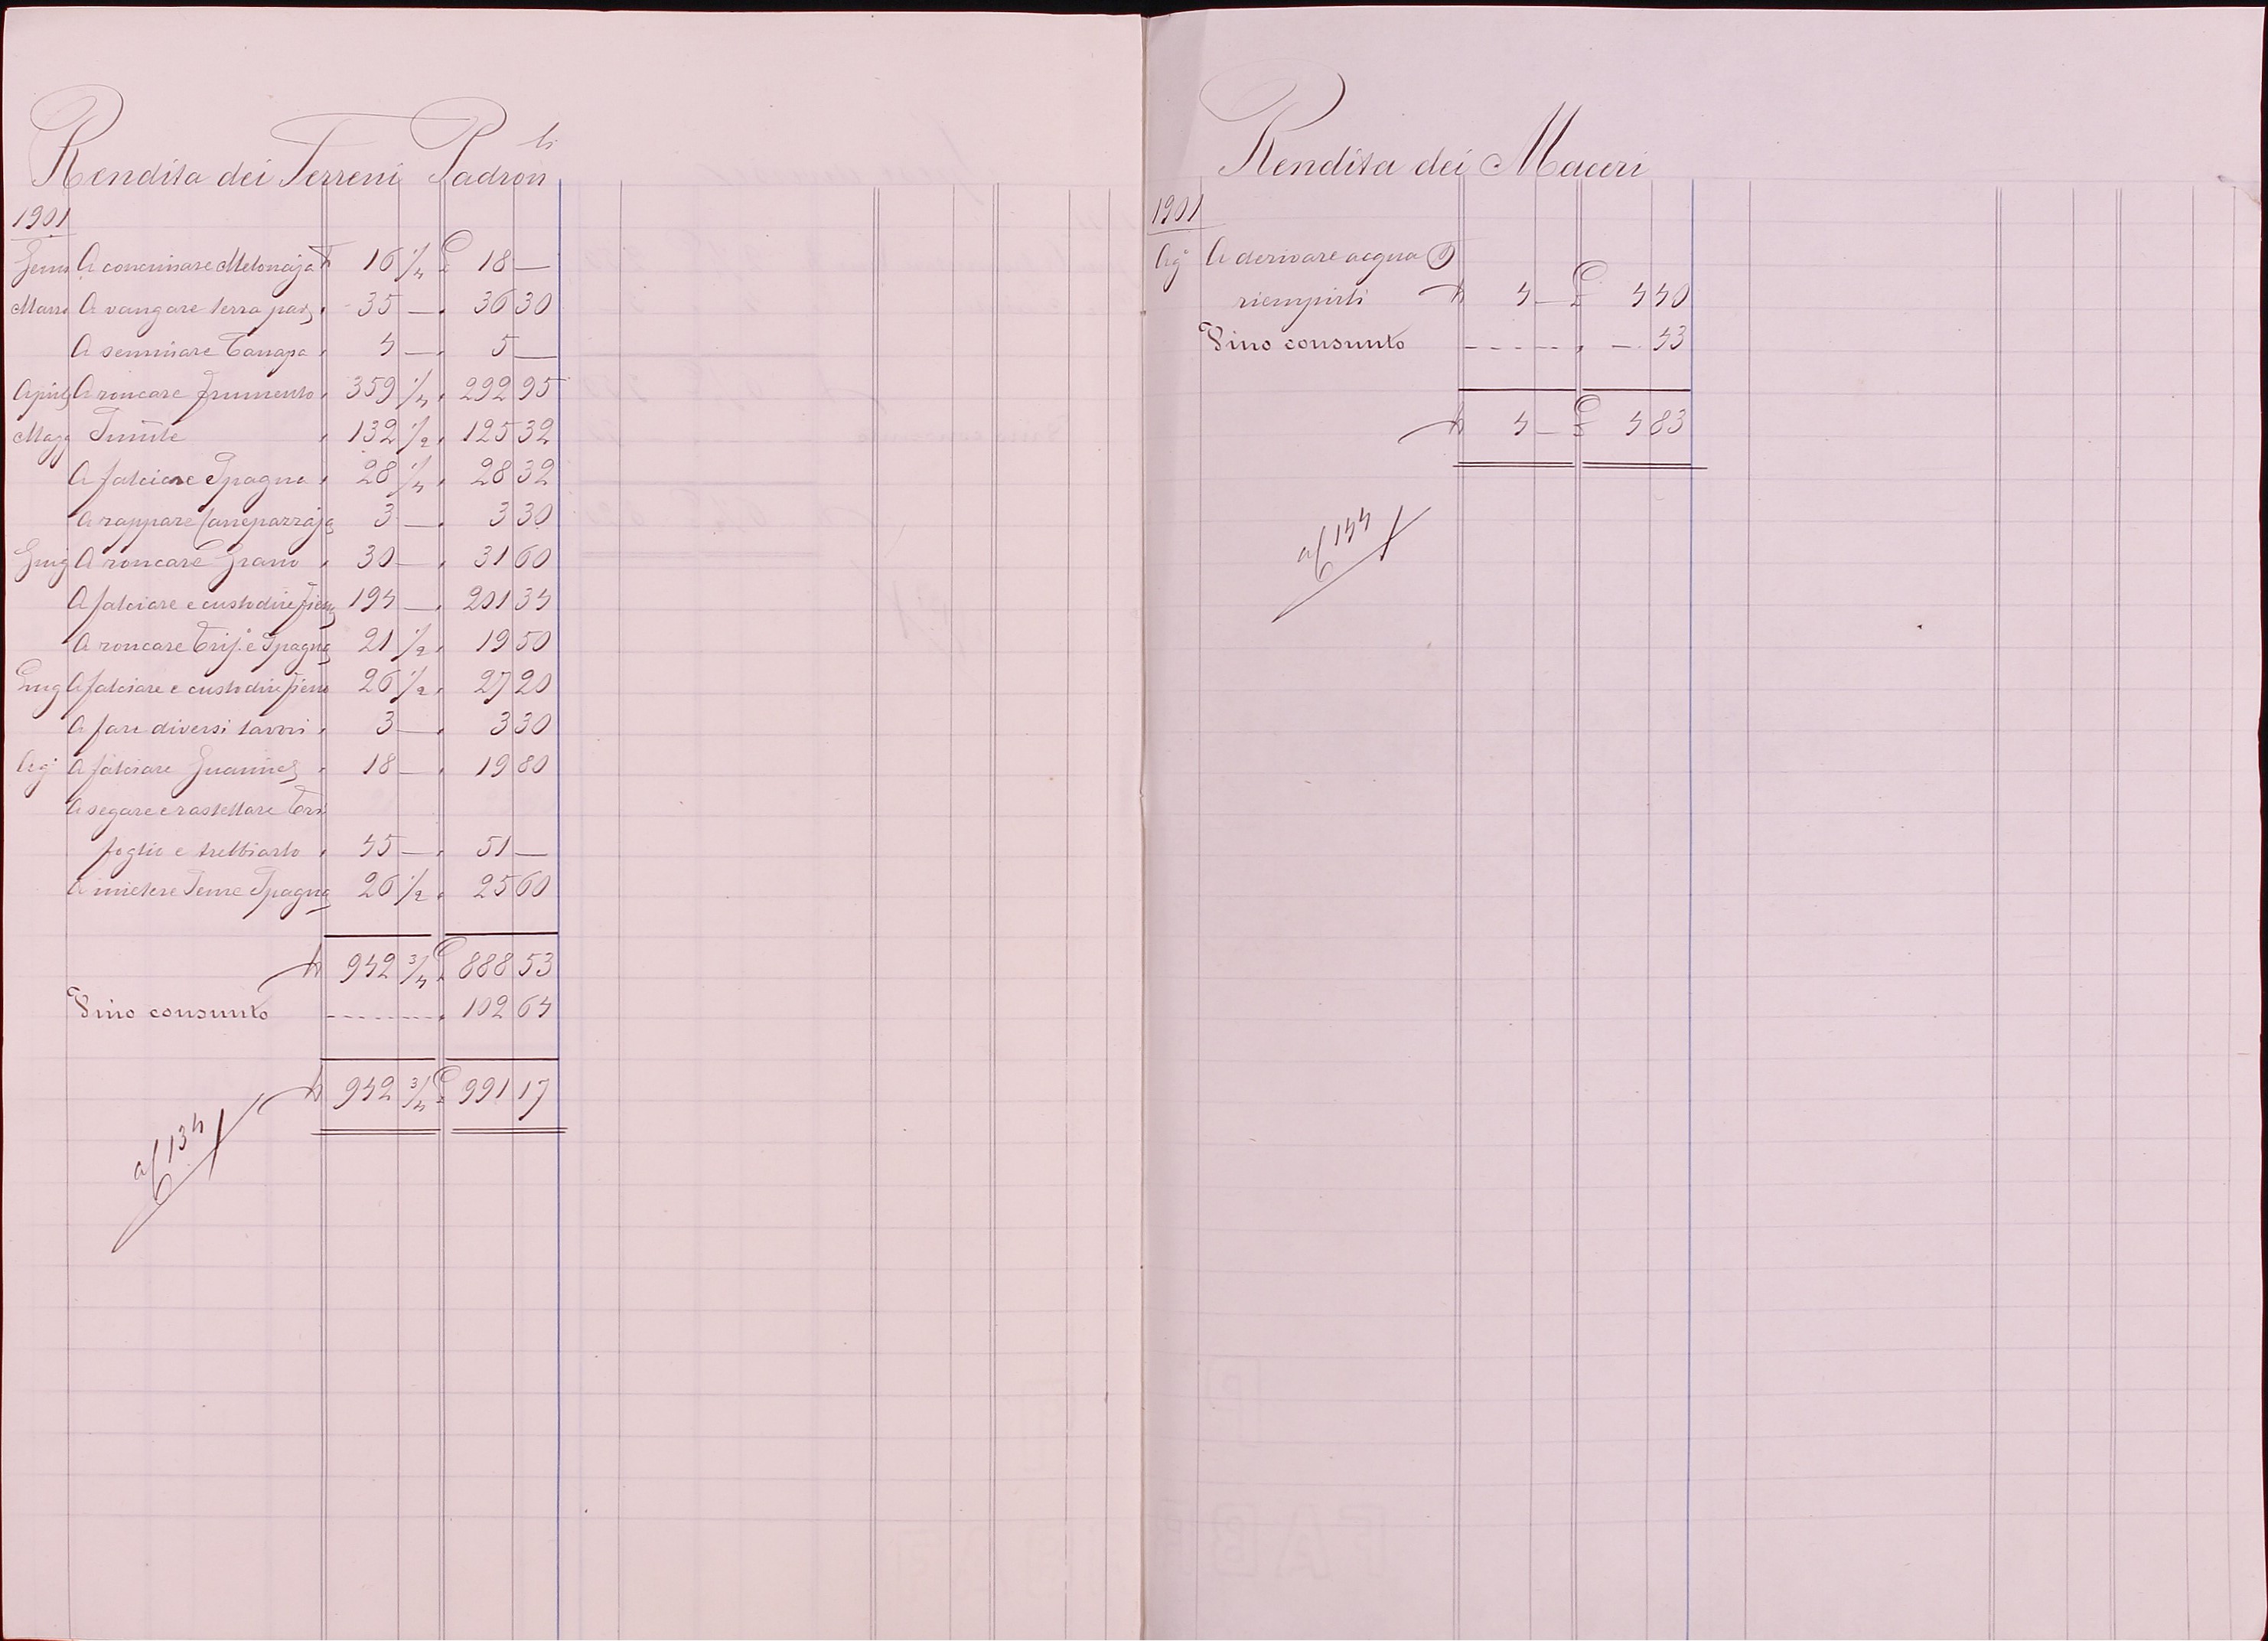 Rendita dei Terreni Padron^li
1901
Genn A concimare Melonaja N 16 1/4 £ 18 —
Marzo A vangare terra par , 35 — , 36 30
A seminare Canapa , 4 — , 5 —
Aprile A roncare frumento , 359 1/4 , 292 95
Magg Simile , 132 1/2 , 125 32
A falciare Spagna , 28 1/4 , 28 32
A rappare Caneparraja 3 — , 3 30
Giug A roncare Grano , 30 — , 31 60
A falciare e custodire fieno 194 — , 201 34
A roncare Trif.º e Spagna 21 1/2 , 19 50
Lug A falciare e custodire fieno 26 1/2 , 27 20
A fare diversi lavori , 3 — , 3 30
Agº A falciare Guaime , 18 — , 19 80
A segare e rastellare Tri
foglio e trebbiarlo , 45 — , 51 —
A mietere Seme Spagna 26 1/2 , 25 60
N 942 3/4 £ 888 53
Vino consunto -------- , 102 64
N 942 3/4 £ 991 17
a f 134
Rendita dei Maceri
1901
Agº A derivare acqua p
riempirli N 4 — £ 4 40
Vino consunto ----- , — 43
N 4 — £ 4 83
a f 144